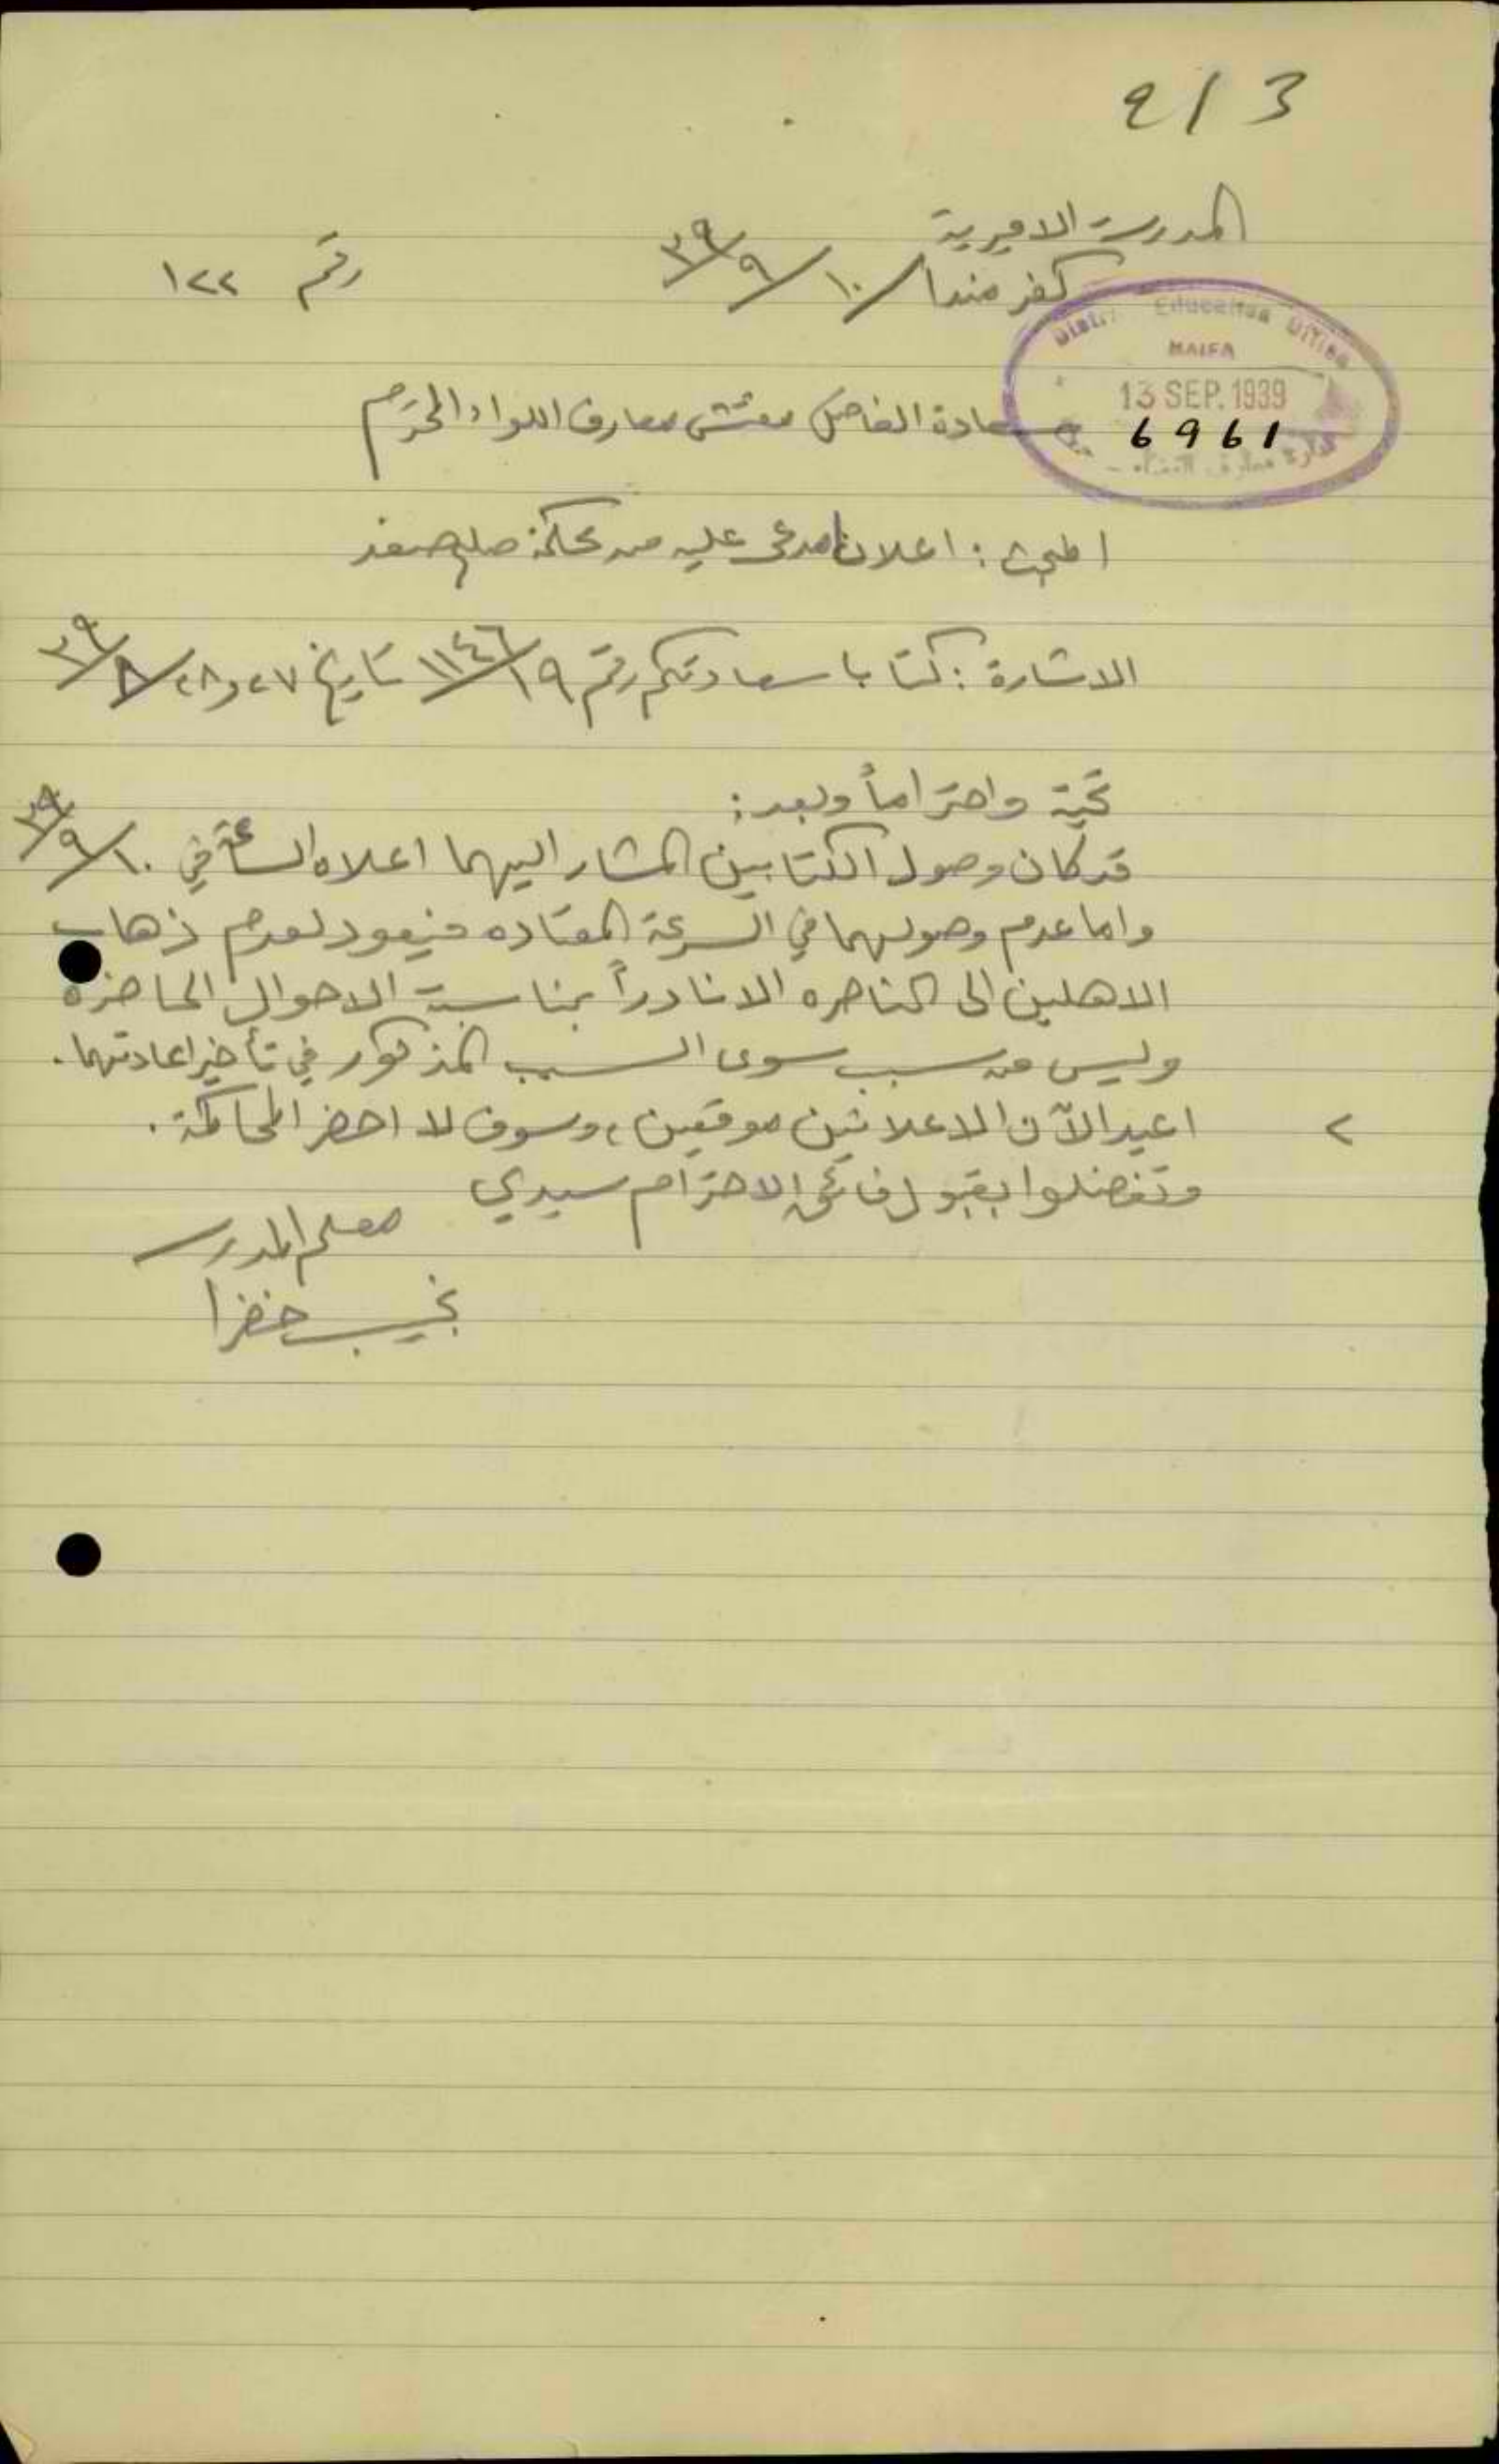 2/3
المدرسة الاميرية
كفر مندا ١٠/٩/٣٩
رقم ١٢٢
District Education Office
HAIFA
13 SEP. 1939
6961
سعادة الفاضل مفتش معارف اللواء المحترم
المبحث: اعلانا مدعى عليه من محكمة صلح صفد
الاشارة: كتابا سعادتكم رقم ١٩/١١٤٦ تاريخ ٢٧ و٢٨/٨/٣٩
تحية واحتراماً وبعد:
قد كان وصول الكتابين المشار اليهما اعلاه الساعة في ١٠/٩/٣٩
واما عدم وصولهما في السرعة المعتاده فيعود لعدم ذهاب
الاهلين الى الناصره الا نادراً بمناسبة الاحوال الحاضرة
وليس من سبب سوى السبب المذكور في تأخير اعادتهما.
٢ اعيد الآن الاعلانين موقعين، وسوف لا احضر المحاكمة.
وتفضلوا بقبول فائق الاحترام سيدي
معلم المدرسة
نجيب خضرا